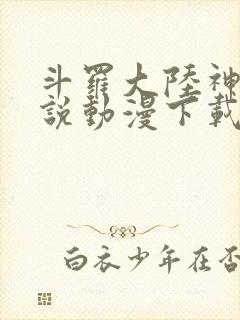 斗羅大陸神
說動漫下載
白衣少年在否